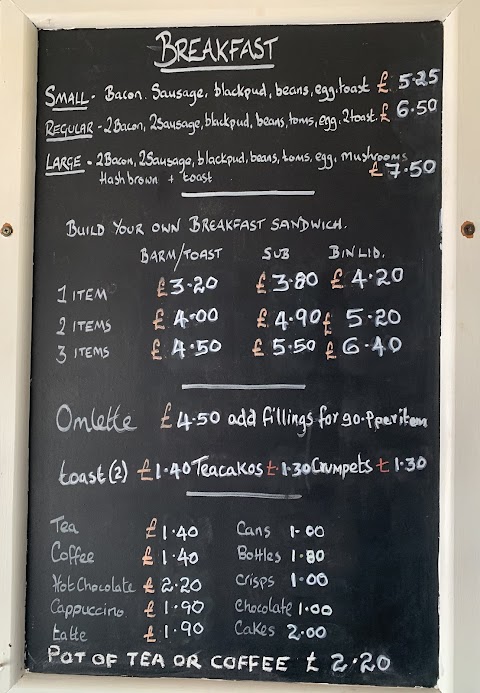 BREAKFAST
SMALL - Bacon. Sausage, blackpud, beans, egg, toast £ 5.25
REGULAR - 2Bacon, 2Sausage, blackpud, beans, toms, egg, 2toast. £ 6.50
LARGE - 2Bacon, 2Sausage, blackpud, beans, toms, egg, mushrooms
Hash brown + toast £7.50
BUILD YOUR OWN BREAKFAST SANDWICH.
BARM/TOAST SUB BIN LID.
1 ITEM £3.20 £3.80 £4.20
2 ITEMS £4.00 £4.90 £5.20
3 ITEMS £4.50 £5.50 £6.40
Omlette £4.50 add fillings for 90.p per item
toast (2) £1.40 Teacakes £1.30 Crumpets £1.30
Tea £1.40 Cans 1.00
Coffee £1.40 Bottles 1.80
Hot Chocolate £2.20 Crisps 1.00
Cappuccino £1.90 Chocolate 1.00
Latte £1.90 Cakes 2.00
POT OF TEA OR COFFEE £2.20